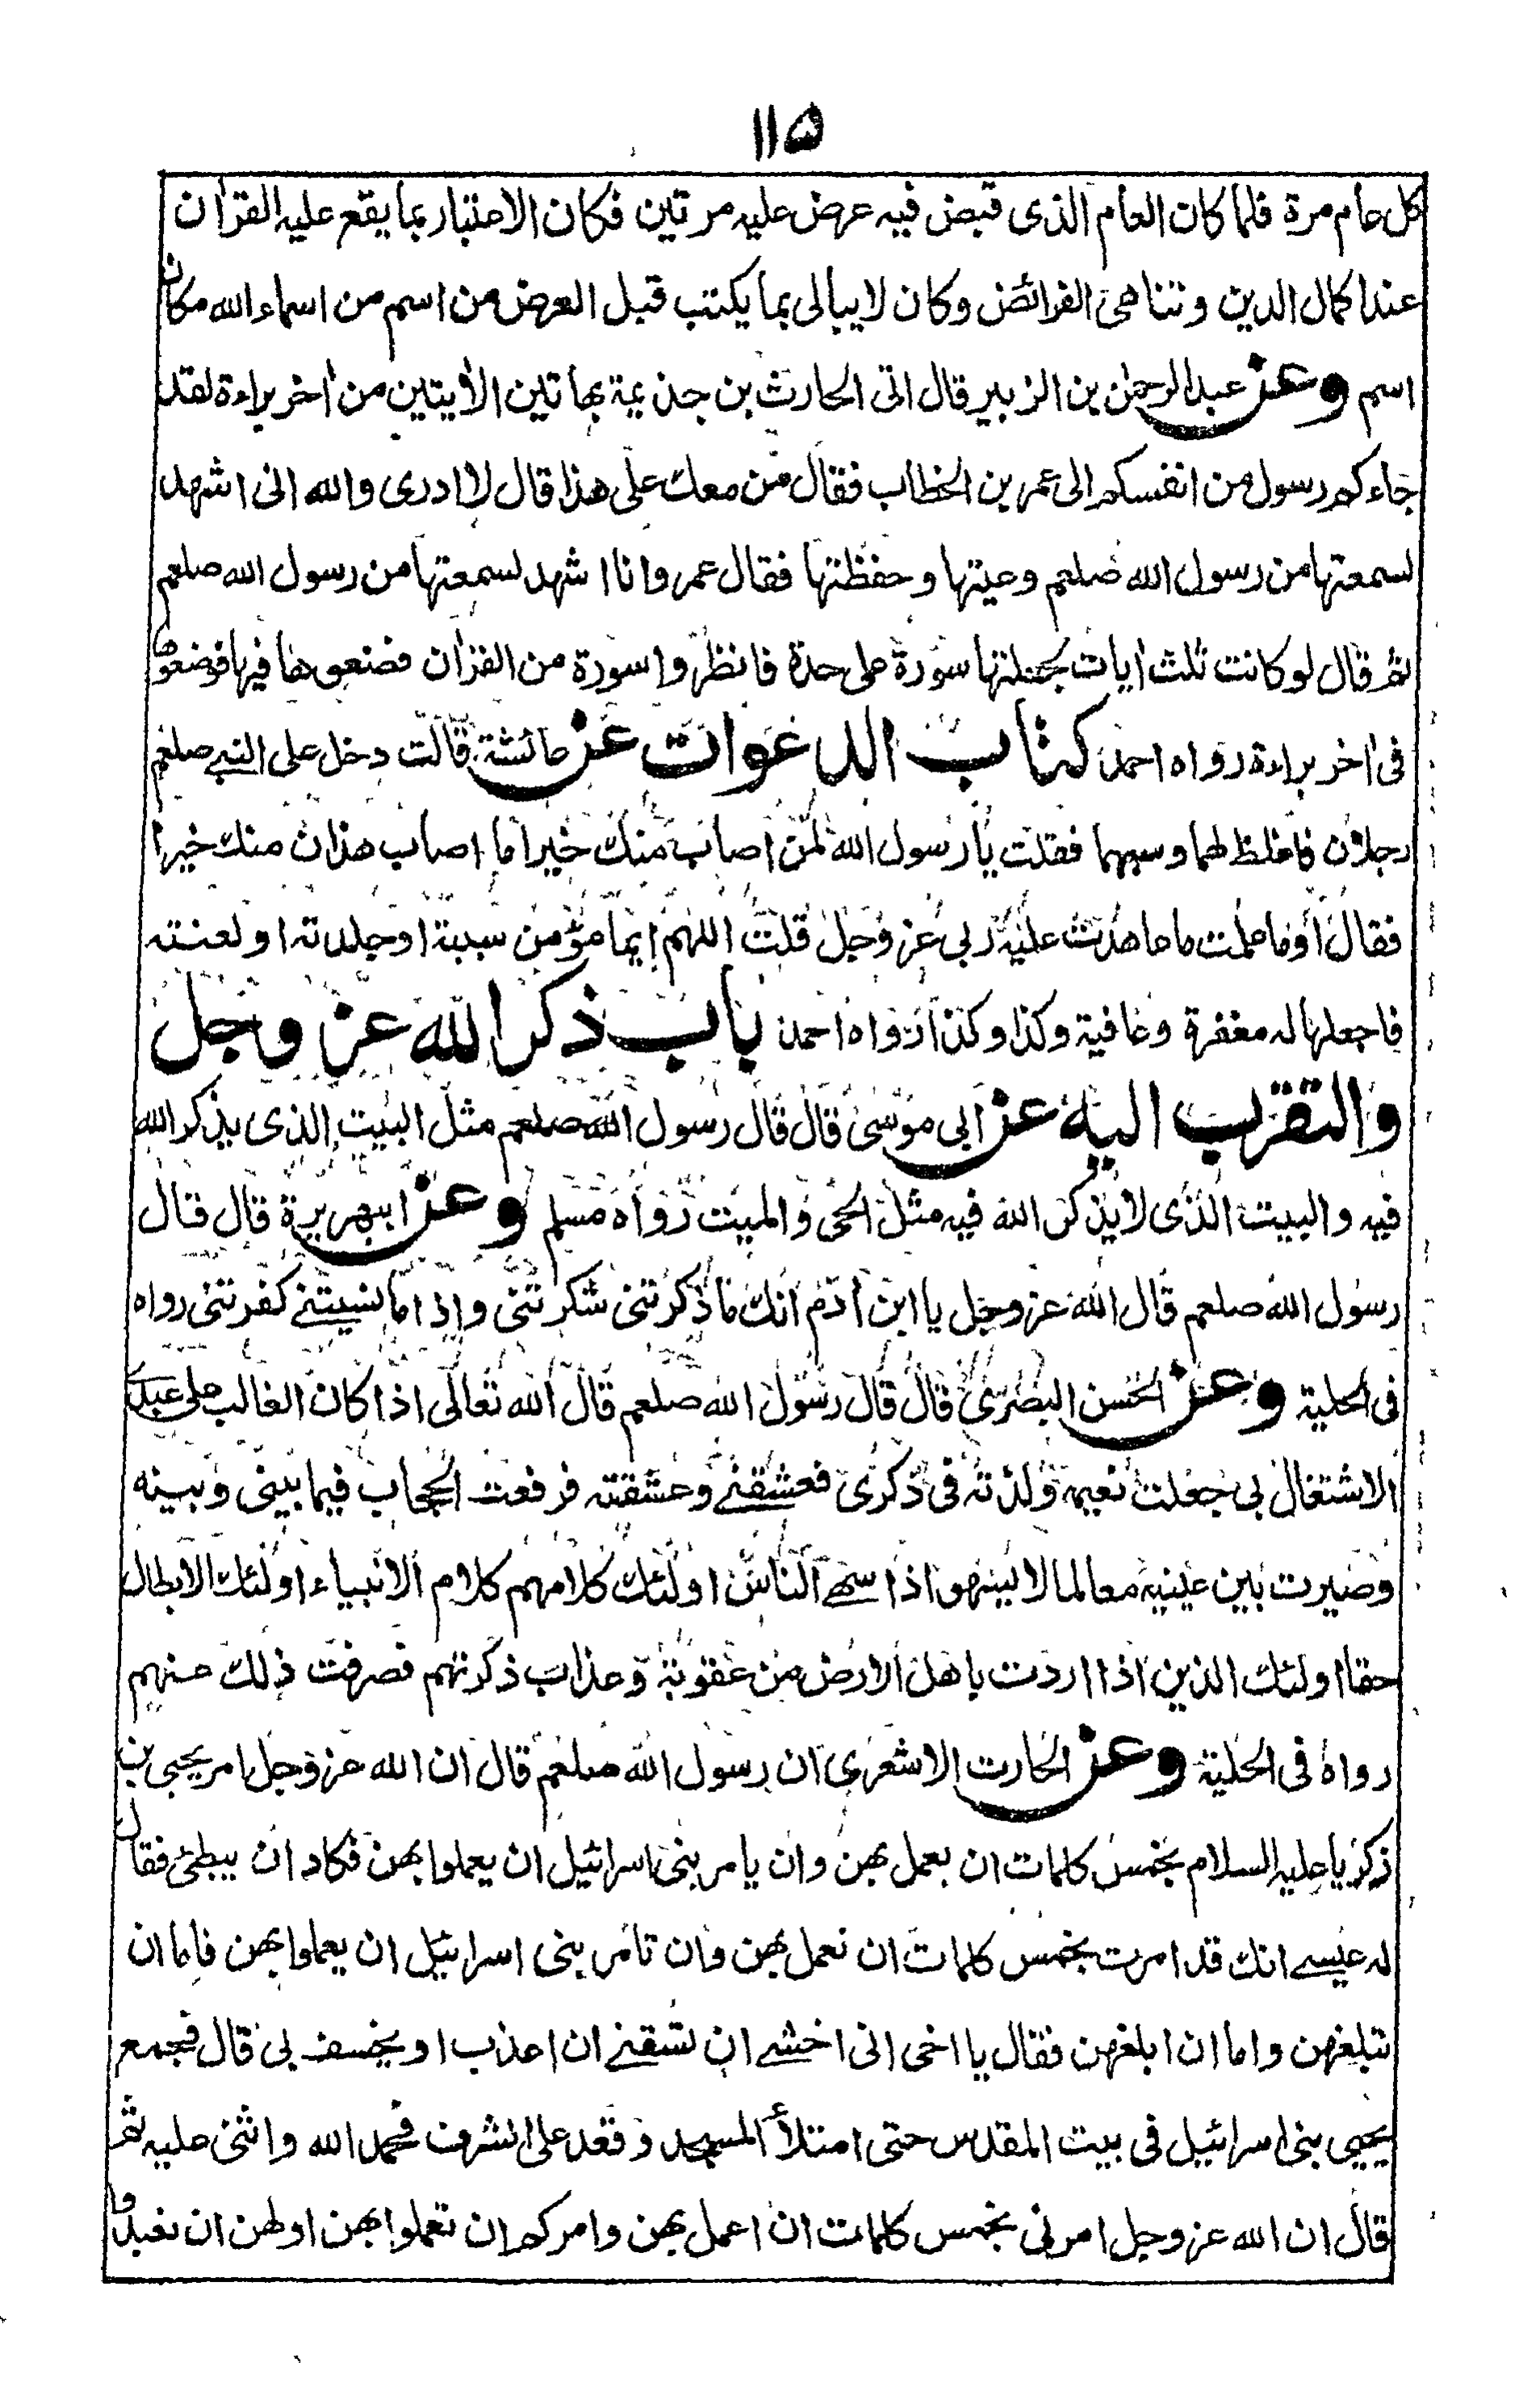 ۱۱۵
كل عام مرة فلما كان العام الذى قبض فيه عرض عليه مرتين فكان الاعتبار بما يقع عليه القرآن
عند اكمال الدين وتناهى الفرائض وكان لا يبالى بما يكتب قبل العرض من اسم من اسماء الله مكان
اسم وعن عبدالرحمٰن بن الزبير قال اتى الحارث بن جذيمة بهاتين الأيتين من أخر براءة لقد
جاءكم رسول من انفسكم الى عمر بن الخطاب فقال من معك على هذا قال لا ادرى والله انى اشهد
لسمعتها من رسول الله صلعم وعيتها وحفظتها فقال عمر وانا اشهد لسمعتها من رسول الله صلعم
ثم قال لو كانت ثلث أيات لجعلتها سورة على حدة فانظروا سورة من القرأن فضعوها فيها فوضعوها
فى أخر براءة رواه احمد كتاب الدعوات عن عائشة قالت دخل على النبى صلعم
رجلان فاغلظ لهما وسبهما فقلت يا رسول الله لمن اصاب منك خيرا ما اصاب هذان منك خيرا
فقال أوما علمت ما عاهدت عليه ربى عز وجل قلت اللهم ايما مؤمن سببته او جلدته او لعنته
فاجعلها له مغفرة وعافية وكذا وكذا رواه احمد باب ذكر الله عز وجل
والتقرب اليه عن ابى موسى قال قال رسول الله صلعم مثل البيت الذى يذكر الله
فيه والبيت الذى لا يذكر الله فيه مثل الحى والميت رواه مسلم وعن ابيهريرة قال قال
رسول الله صلعم قال الله عز وجل يا ابن أدم انك ما ذكرتنى شكرتنى واذا ما نسيتنى كفرتنى رواه
فى الحلية وعن الحسن البصرى قال قال رسول الله صلعم قال الله تعالى اذا كان الغالب على عبدى
الاشتغال بى جعلت نعيمه ولذته فى ذكرى فعشقنى وعشقته فرفعت الحجاب فيما بينى وبينه
وصيرت بين عينيه معالما لا يسهو اذا سهى الناس اولئك كلامهم كلام الانبياء اولئك الابطال
حقا اولئك الذين اذا اردت باهل الارض من عقوبة وعذاب ذكرتهم فصرفت ذلك عنهم
رواه فى الحلية وعن الحارت الاشعرى ان رسول الله صلعم قال ان الله عز وجل امر يحيى بن
زكريا عليه السلام بخمس كلمات ان يعمل بهن وان يامر بنى اسرائيل ان يعملوا بهن فكاد ان يبطئ فقال
له عيسى انك قد امرت بخمس كلمات ان تعمل بهن وان تامر بنى اسرائيل ان يعملوا بهن فاما ان
تبلغهن واما ان ابلغهن فقال يا اخى انى اخشى ان تسبقنى ان اعذب او يخسف بى قال فجمع
يحيى بنى اسرائيل فى بيت المقدس حتى امتلأ المسجد وقعد على الشرف فحمد الله واثنى عليه ثم
قال ان الله عز وجل امرنى بخمس كلمات ان اعمل بهن وامركم ان تعملوا بهن اولهن ان تعبدوا